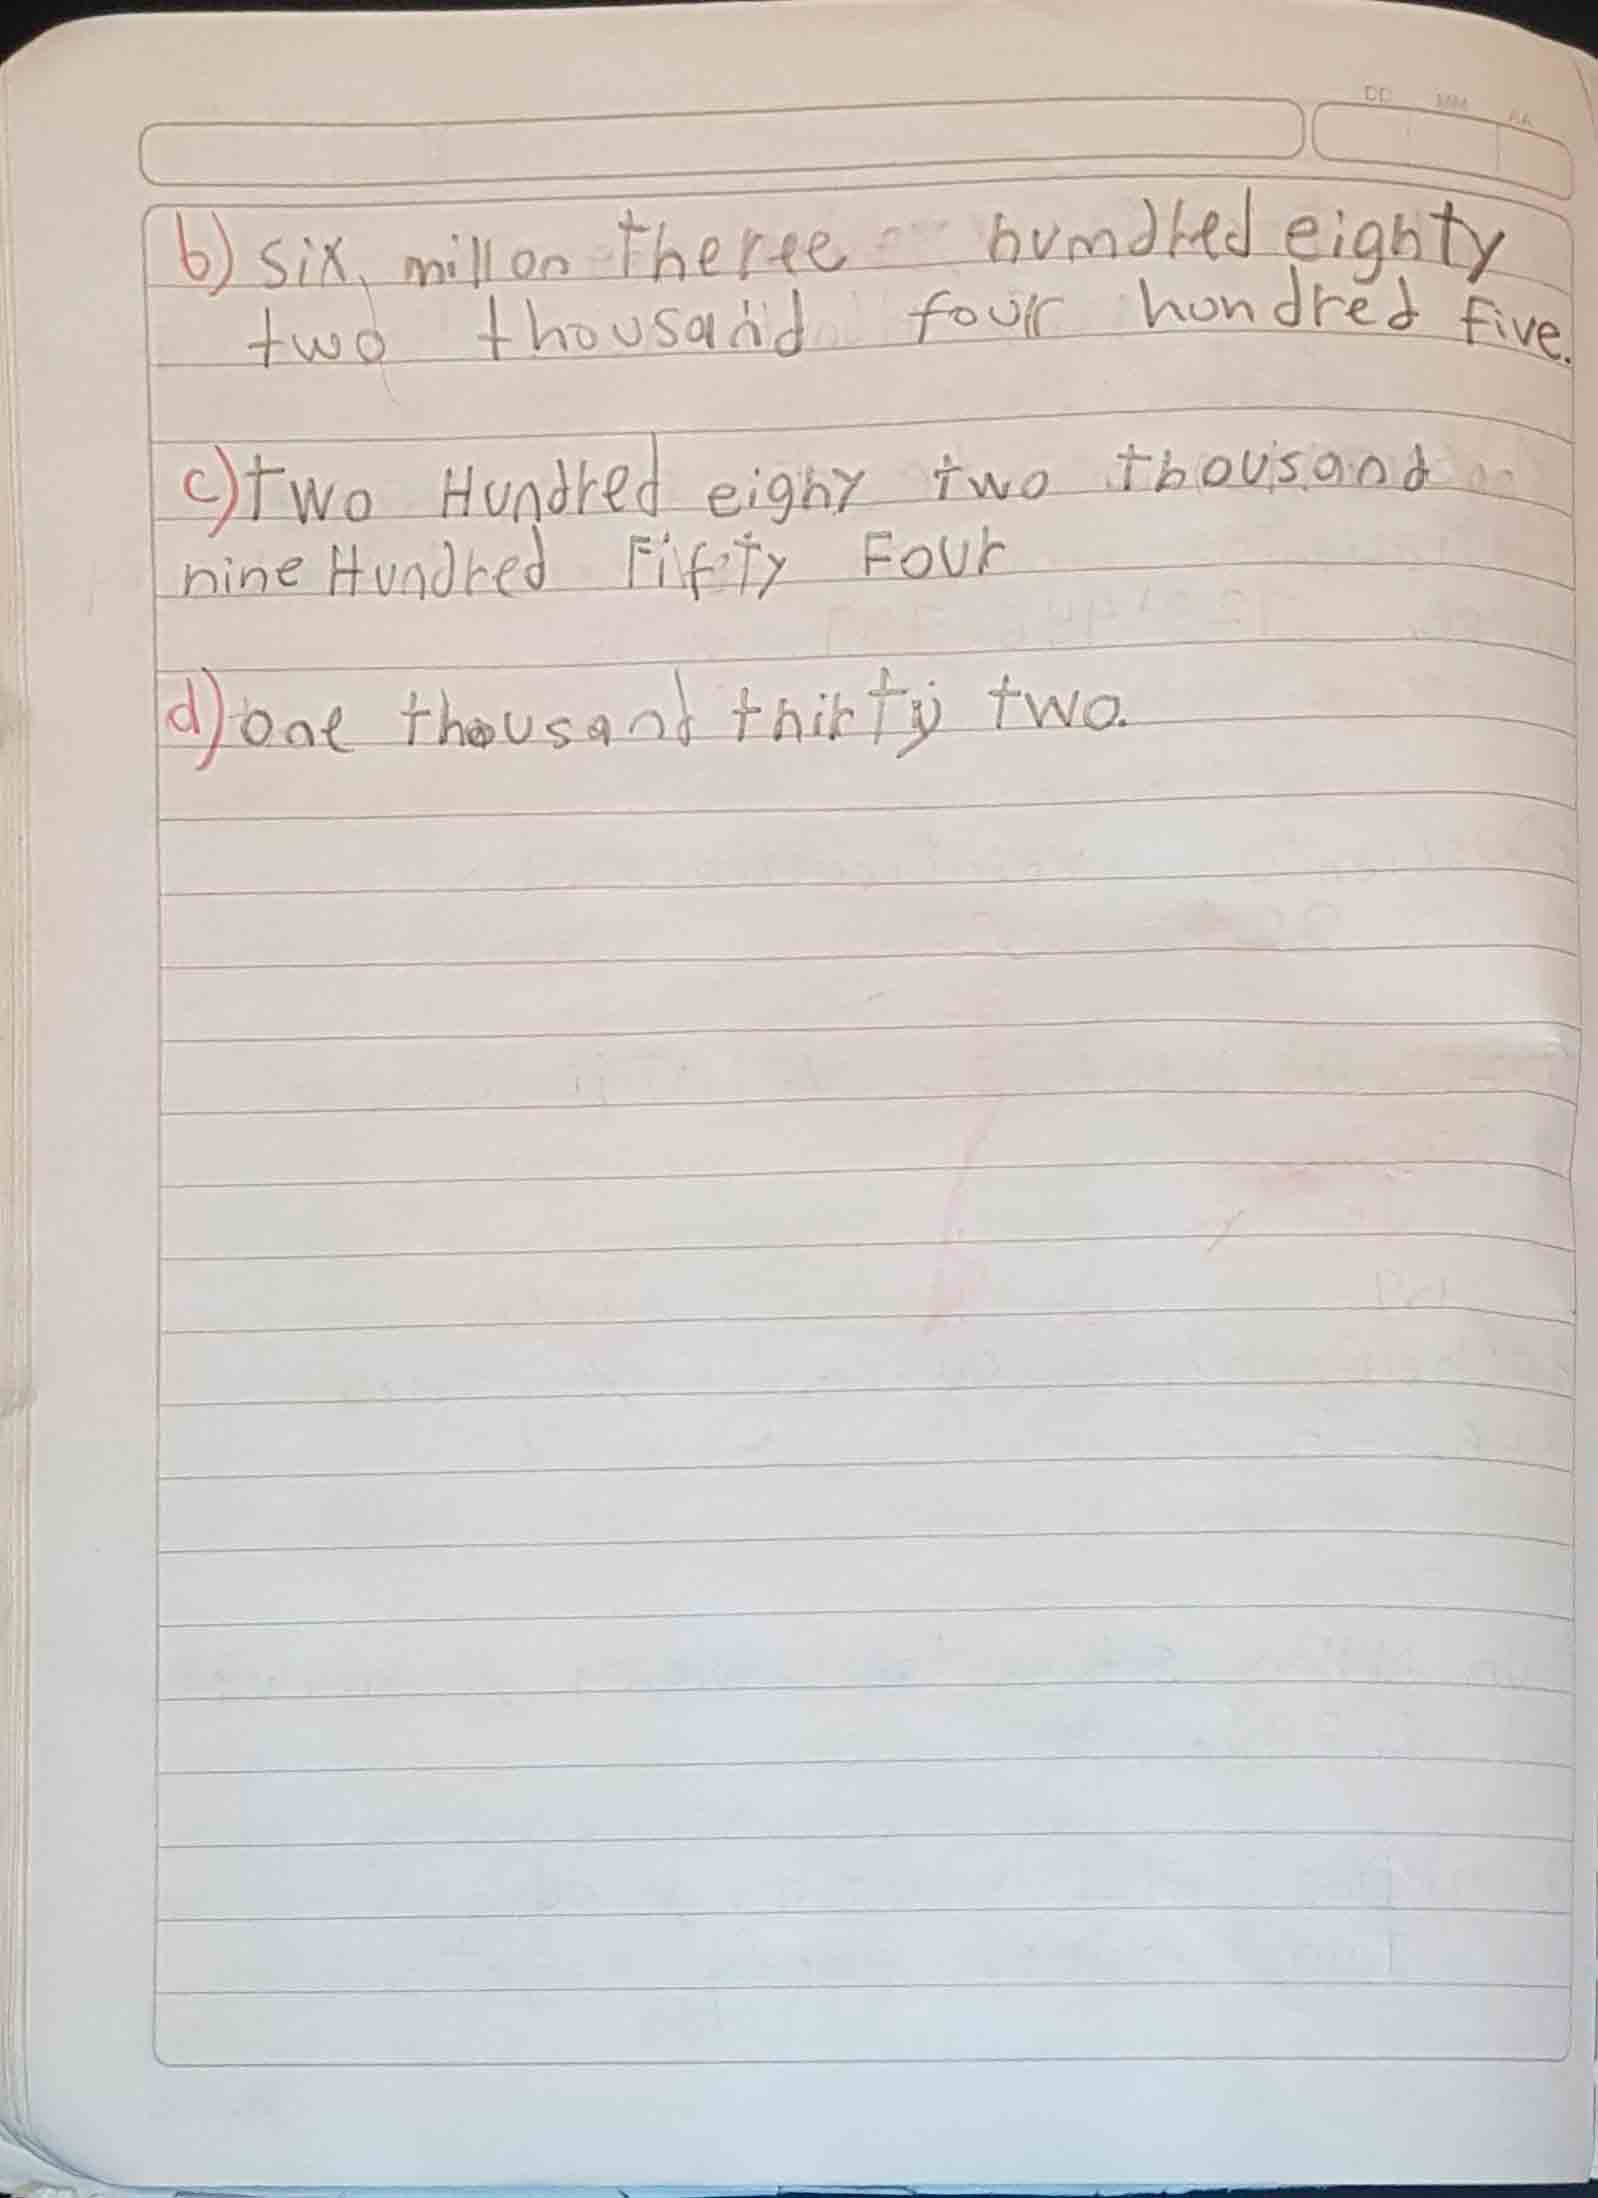 DD MM AA
b) six, millon theree humdred eighty
two thousand four hundred five.
c) two Hundred eighy two thousand
nine Hundred Fifty Four
d) one thousand thirty two.